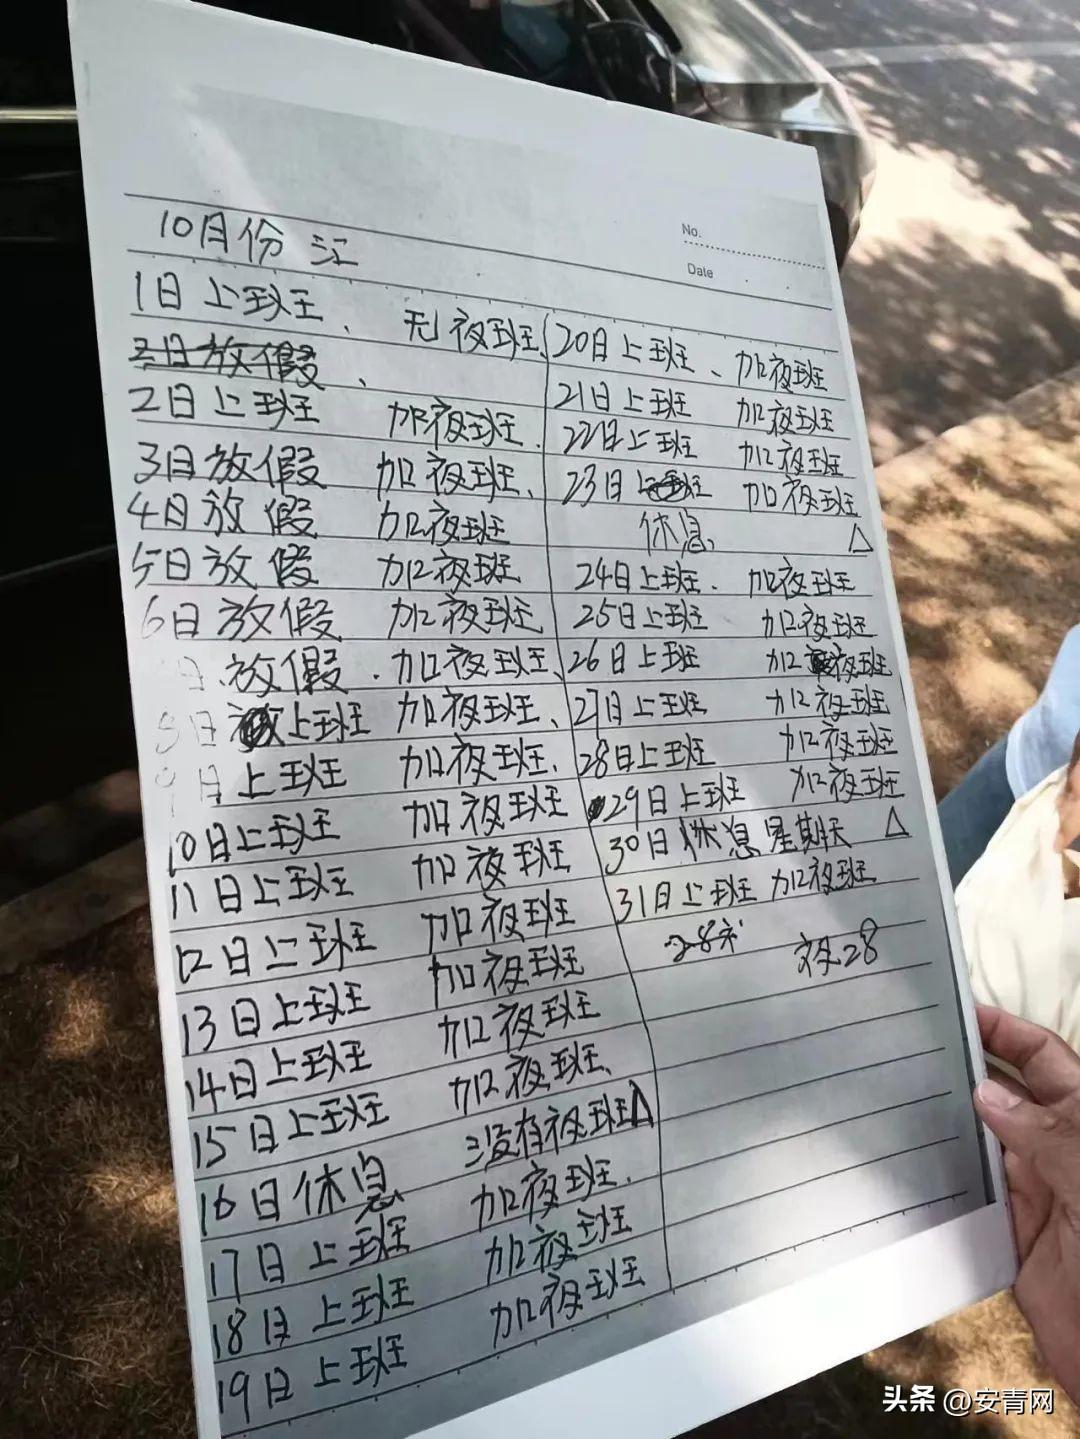 No.
Date
10月份 江
1日上班、 无夜班、
2日放假、
2日上班 加夜班、
3日放假 加夜班、
4日放假 加夜班
5日放假 加夜班
6日放假 加夜班
日.放假.加夜班、
8日上班 加夜班、
9日上班 加夜班.
10日上班 加夜班
11日上班 加夜班
12日上班 加夜班
13日上班 加夜班
14日上班 加夜班
15日上班 加夜班、
16日休息 没有夜班△
17日上班 加夜班.
18日上班 加夜班
19日上班 加夜班
20日上班、加夜班
21日上班 加夜班
22日上班 加夜班
23日上班 加夜班
休息、 △
24日上班. 加夜班
25日上班 加夜班
26日上班 加夜班
27日上班 加夜班
28日上班 加夜班
29日上班 加夜班
30日休息星期天 △
31日上班 加夜班
28 夜28
头条 @安青网